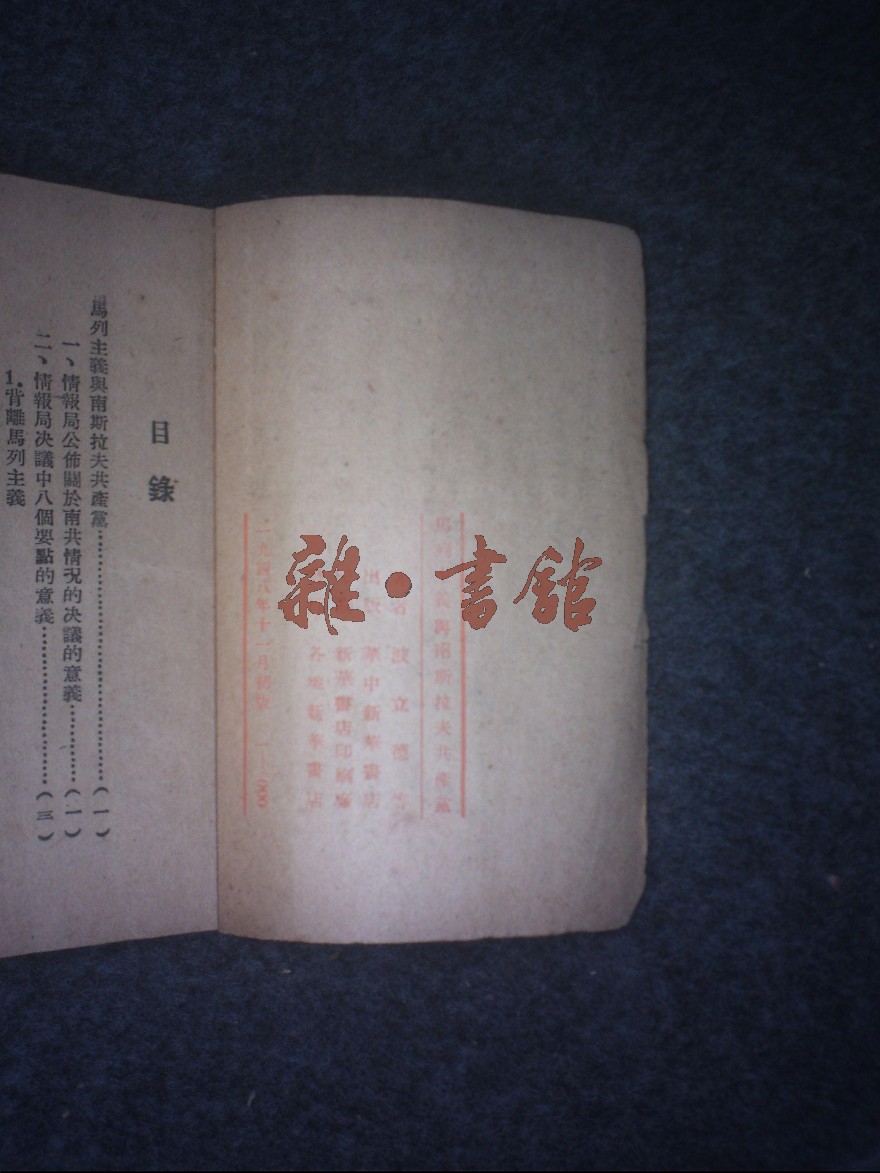 馬列主義與南斯拉夫共產黨
波立德
出版 華中新華書店
新華書店印刷廠
各地新華書店
一九四八年十一月初版
雜•書館
目錄
馬列主義與南斯拉夫共產黨……………………(一)
一、情報局公佈關於南共情況的決議的意義………(一)
二、情報局決議中八個要點的意義………………(三)
1.背離馬列主義